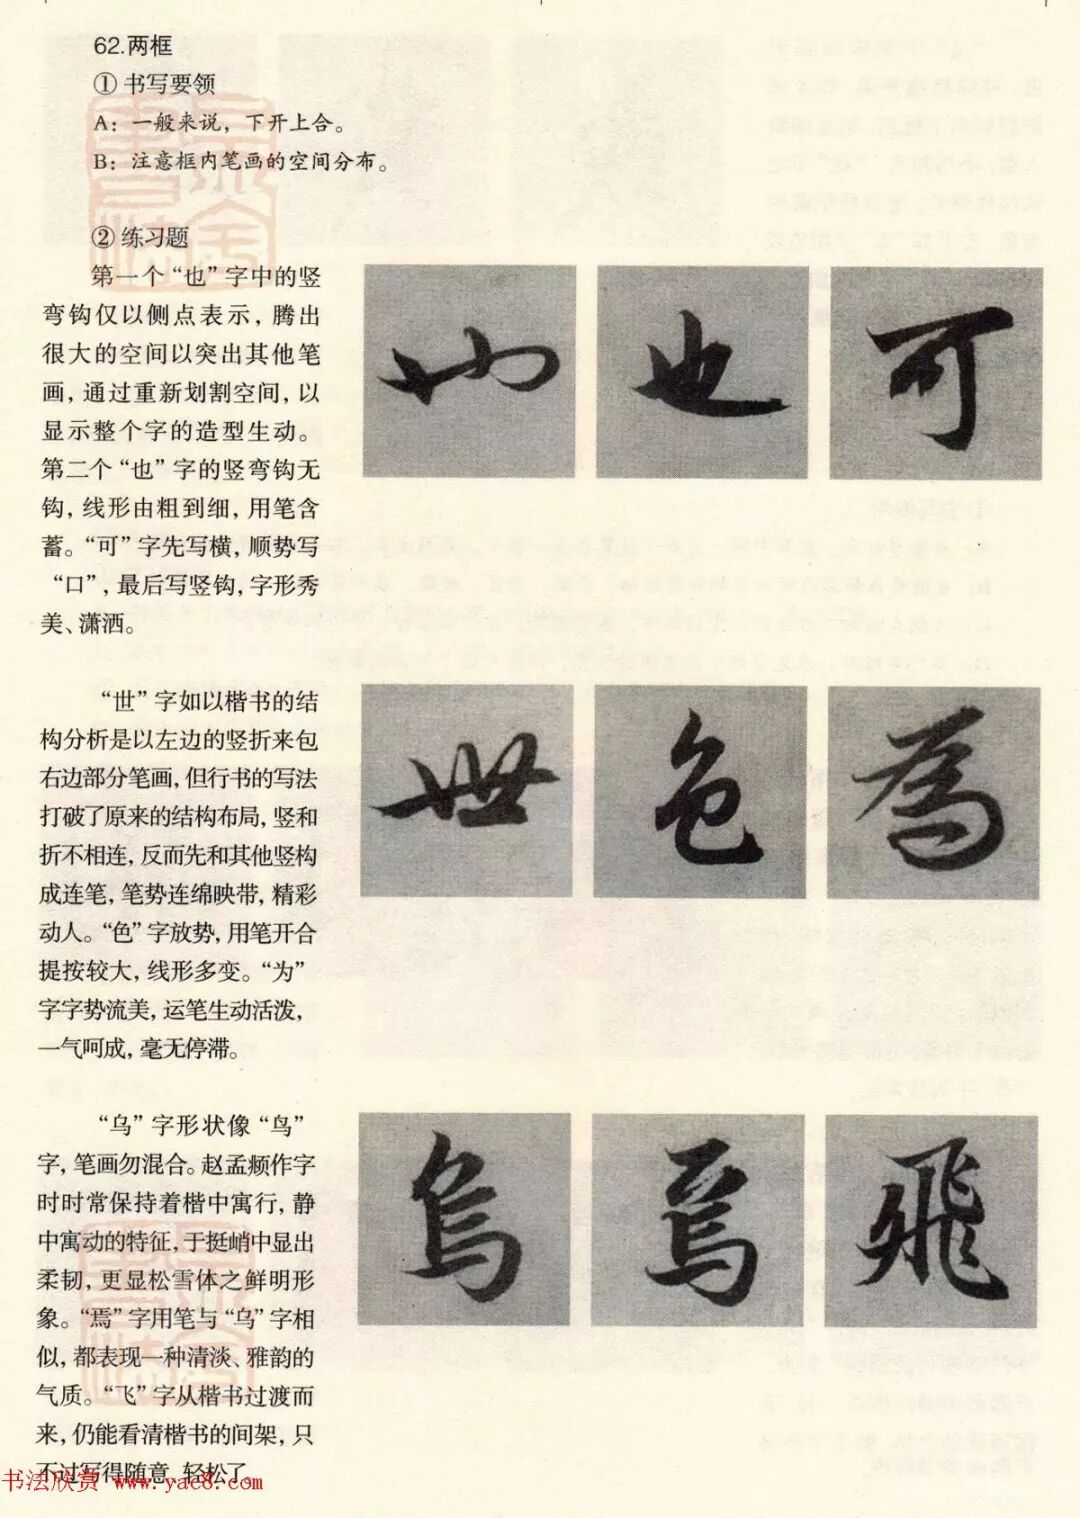 62.两框
① 书写要领
A：一般来说，下开上合。
B：注意框内笔画的空间分布。
② 练习题
第一个“也”字中的竖
弯钩仅以侧点表示，腾出
很大的空间以突出其他笔
画，通过重新划割空间，以
显示整个字的造型生动。
第二个“也”字的竖弯钩无
钩，线形由粗到细，用笔含
蓄。“可”字先写横，顺势写
“口”，最后写竖钩，字形秀
美、潇洒。
也 也 可
“世”字如以楷书的结
构分析是以左边的竖折来包
右边部分笔画，但行书的写法
打破了原来的结构布局，竖和
折不相连，反而先和其他竖构
成连笔，笔势连绵映带，精彩
动人。“色”字放势，用笔开合
提按较大，线形多变。“为”
字字势流美，运笔生动活泼，
一气呵成，毫无停滞。
世 色 為
“乌”字形状像“鸟”
字，笔画勿混合。赵孟頫作字
时时常保持着楷中寓行，静
中寓动的特征，于挺峭中显出
柔韧，更显松雪体之鲜明形
象。“焉”字用笔与“乌”字相
似，都表现一种清淡、雅韵的
气质。“飞”字从楷书过渡而
来，仍能看清楷书的间架，只
不过写得随意、轻松了。
烏 焉 飛
书法欣赏 www.yac8.com